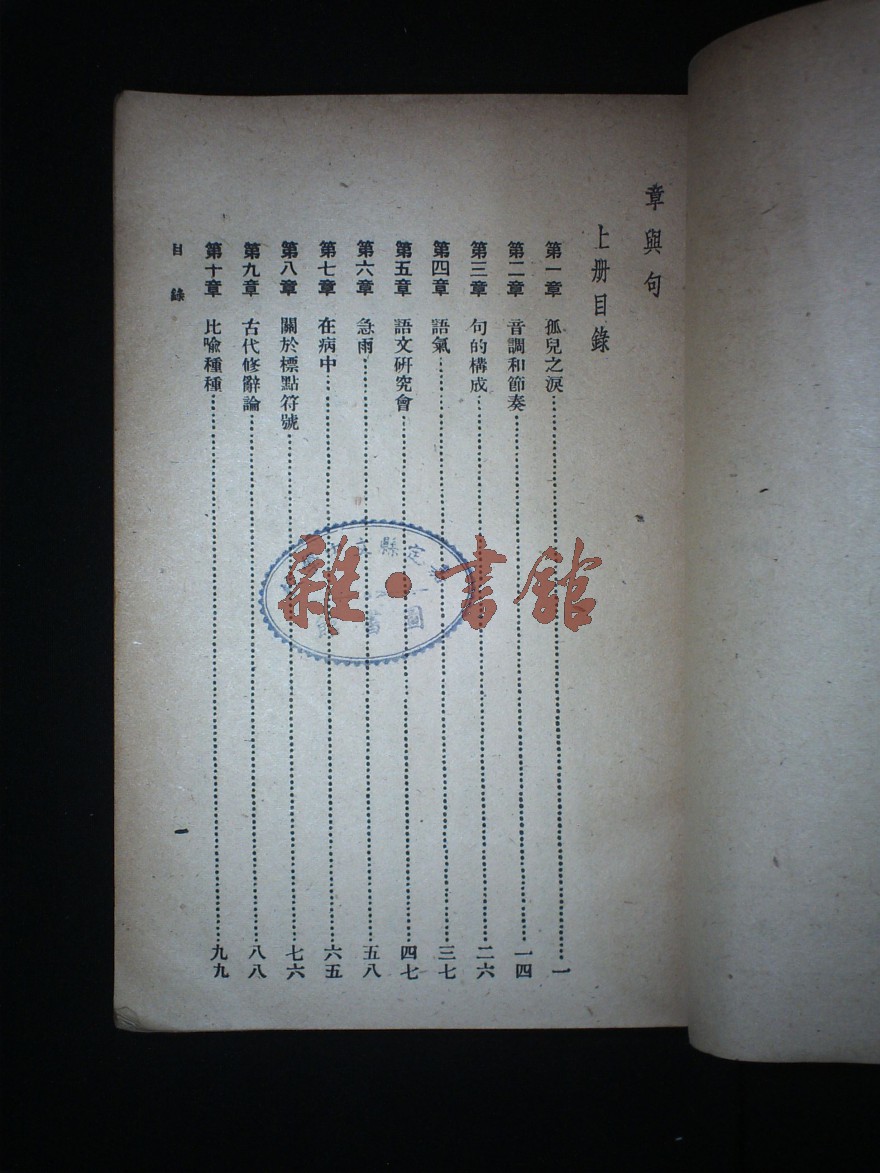 章與句
上册目錄
第一章 孤兒之淚……一
第二章 音調和節奏……一四
第三章 句的構成……二六
第四章 語氣……三七
第五章 語文研究會……四七
第六章 急雨……五八
第七章 在病中……六五
第八章 關於標點符號……七六
第九章 古代修辭論……八八
第十章 比喻種種……九九
目錄
一
雜·書館
縣定
圖書館